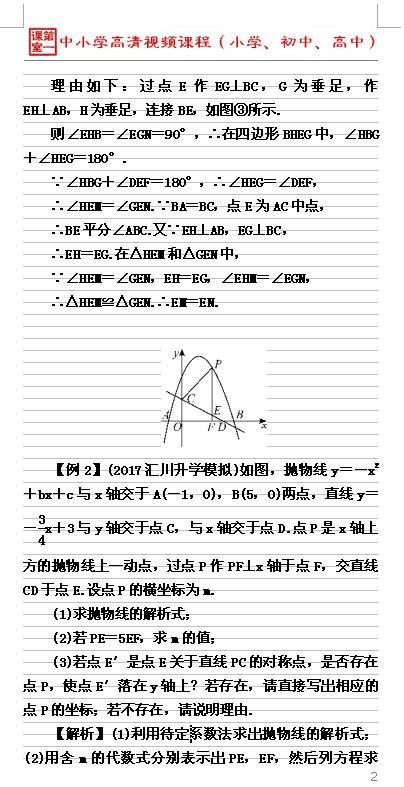 课第
堂一
中小学高清视频课程（小学、初中、高中）
理由如下：过点 E 作 EG⊥BC，G 为垂足，作
EH⊥AB，H为垂足，连接 BE，如图③所示.
则∠EHB＝∠EGN＝90°，∴在四边形 BHEG 中，∠HBG
＋∠HEG＝180°.
∵∠HBG＋∠DEF＝180°，∴∠HEG＝∠DEF，
∴∠HEM＝∠GEN.∵BA＝BC，点 E 为 AC 中点，
∴BE平分∠ABC.又∵EH⊥AB，EG⊥BC，
∴EH＝EG.在△HEM和△GEN中，
∵∠HEM＝∠GEN，EH＝EG，∠EHM＝∠EGN，
∴△HEM≌△GEN.∴EM＝EN.
y
P
C
A
E
B
O
F
D
x
【例 2】(2017汇川升学模拟)如图，抛物线 y＝－x²
＋bx＋c 与 x 轴交于 A(－1，0)，B(5，0)两点，直线 y＝
－3/4x＋3 与 y 轴交于点 C，与 x 轴交于点 D.点 P 是 x 轴上
方的抛物线上一动点，过点 P 作 PF⊥x 轴于点 F，交直线
CD 于点 E.设点 P 的横坐标为 m.
(1)求抛物线的解析式；
(2)若 PE＝5EF，求 m 的值；
(3)若点 E′是点 E 关于直线 PC 的对称点，是否存在
点 P，使点 E′落在 y 轴上？若存在，请直接写出相应的
点 P 的坐标；若不存在，请说明理由.
【解析】(1)利用待定系数法求出抛物线的解析式；
(2)用含 m 的代数式分别表示出 PE，EF，然后列方程求
2